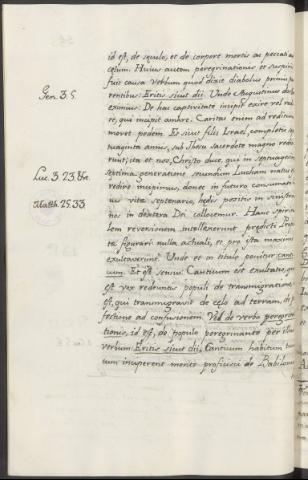 id est, de sęculo, et de corpore mortis ac peccati ad
cęlum. Huius autem peregrinationis et suspirii
fuit causa verbum quod dixit diabolus primis pa-
Gen. 3. 5.
rentibus: Eritis sicut dii. Unde Augustinus do
eximius. De hac captivitate incipit exire vel redi-
re, qui incipit amare. Caritas enim ad reditum
movet pedem. Et sicut filii Israel, completis sep-
tuaginta annis, sub Jhesu sacerdote magno redie-
runt, ita et nos, Christo duce, qui in septuagesima
Luc. 3. 23.
septima generatione secundum Lucham natus est,
redire incipimus, donec in futuro consumati
Matth. 25. 33
us vitę septenario, hędis positis in sinistra
nos in dextera Dei collocemur. Hanc spirita-
lem reversionem intellexerunt predicti Prophe-
tę figurari nulla actuali, et pro ista maxime
exultaverunt. Unde et in titulo ponitur canti-
cum. Et est sensus: Canticum est exultatio, quę
est vox redeuntis populi de transmigratione, id
est, qui transmigravit de cęlo ad terram, de per-
fectione ad confusionem. Vel de verbo peregrina-
tionis, id est, de populo peregrinante per illud
verbum: Eritis sicut dii. Canticum habitum
cum inciperent mente proficisci de Babilonia